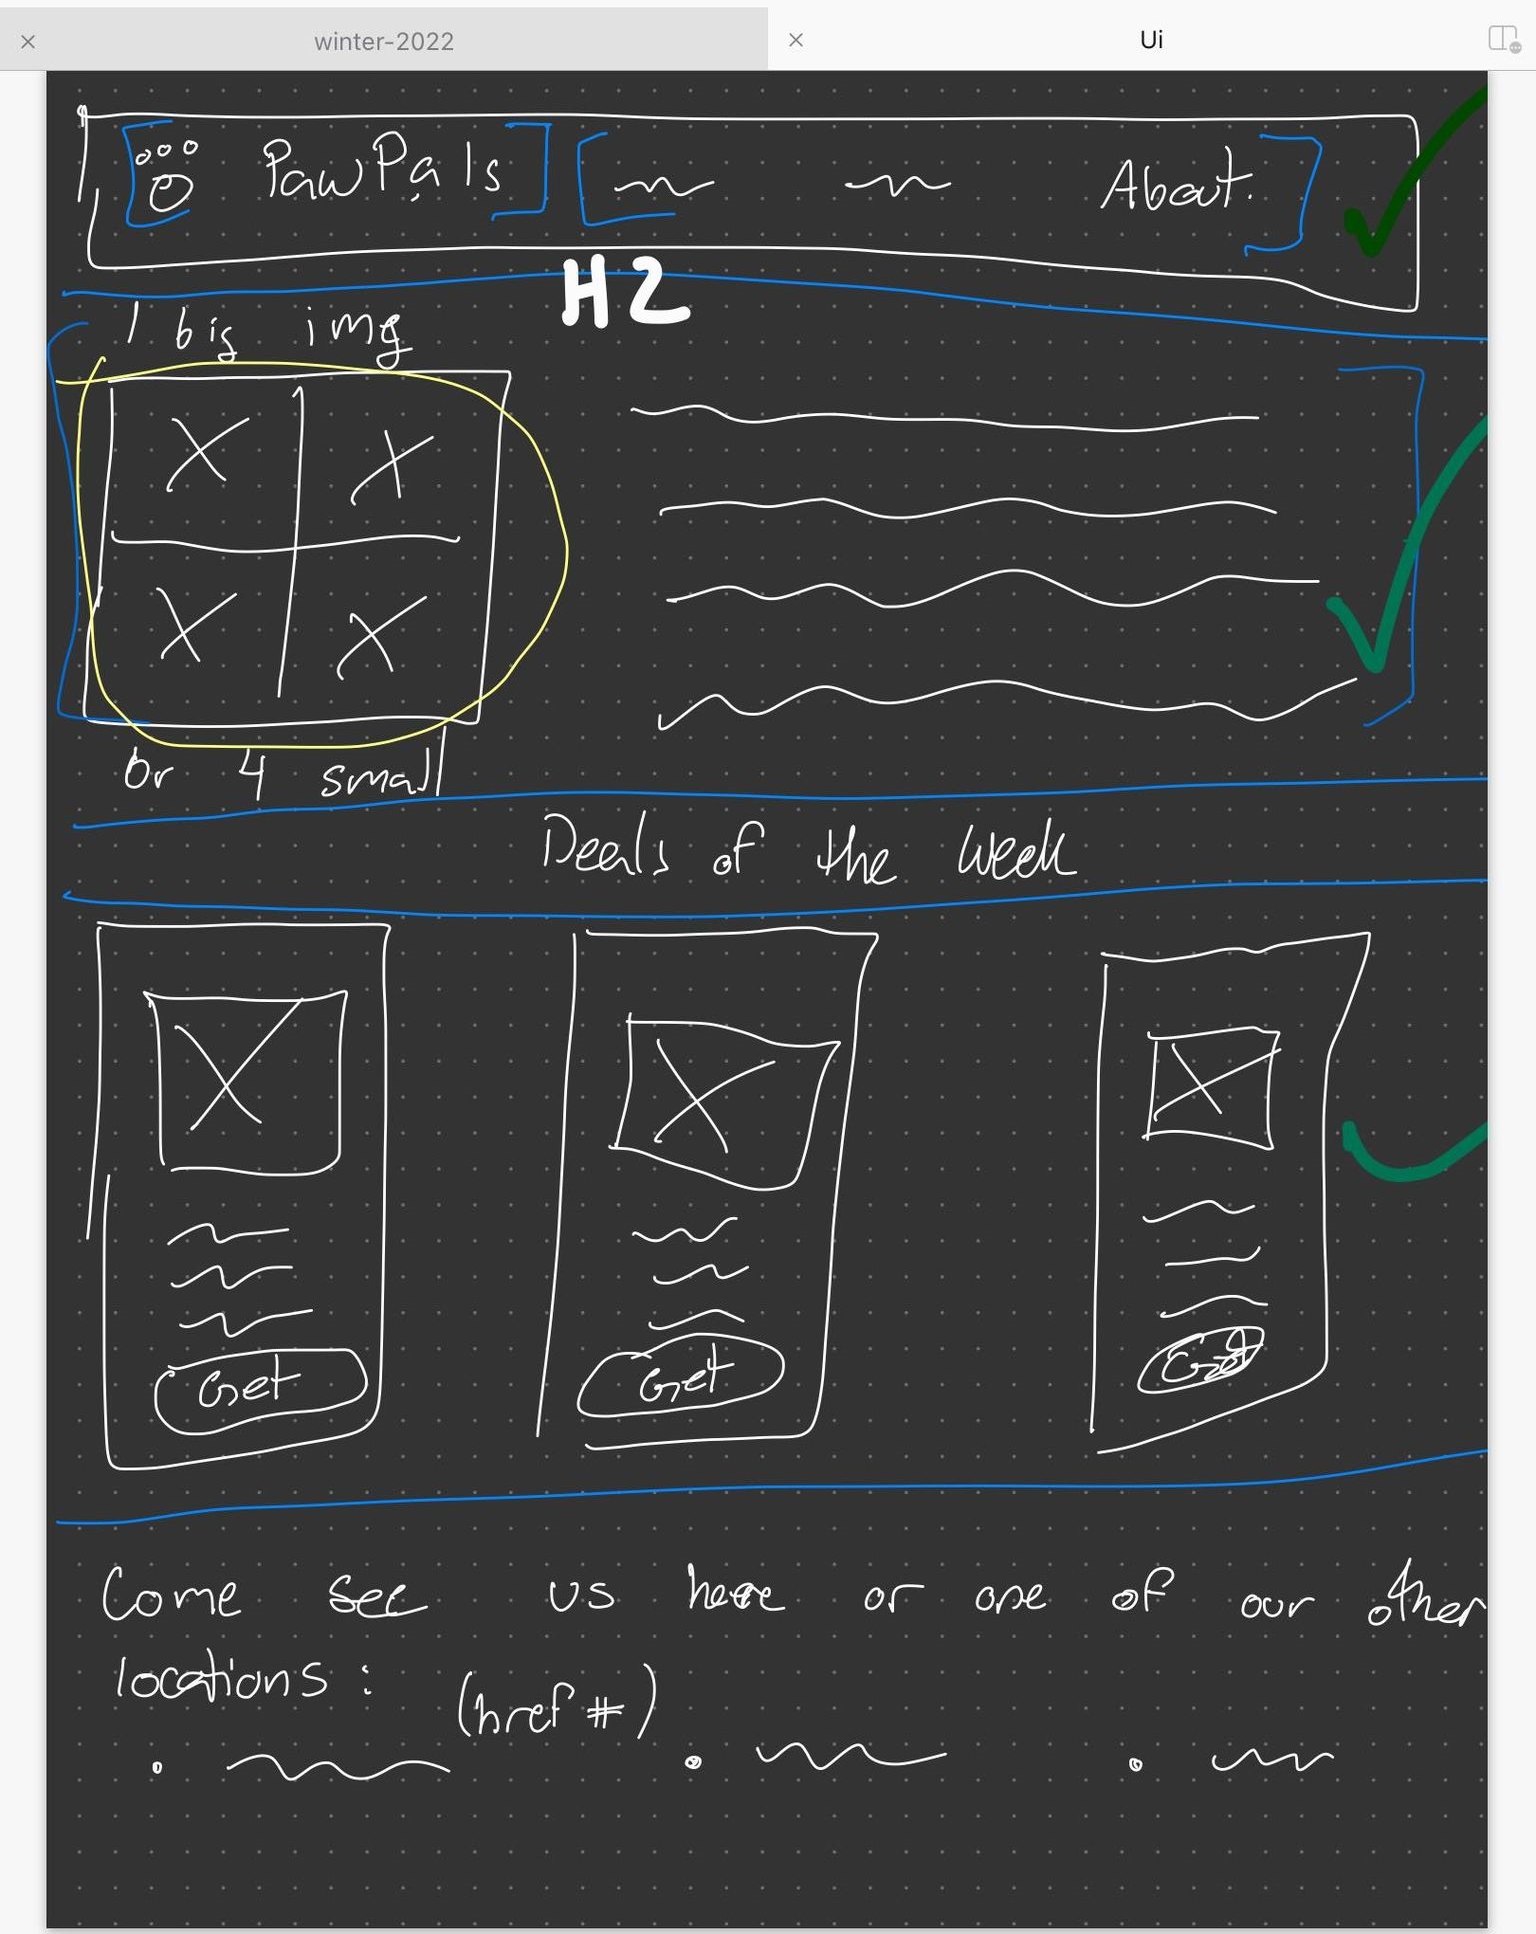 winter-2022
Ui
PawPals About.
H2
1 big img
or 4 small
Deals of the week
Get Get Get
Come see us here or one of our other
locations:
(href #)